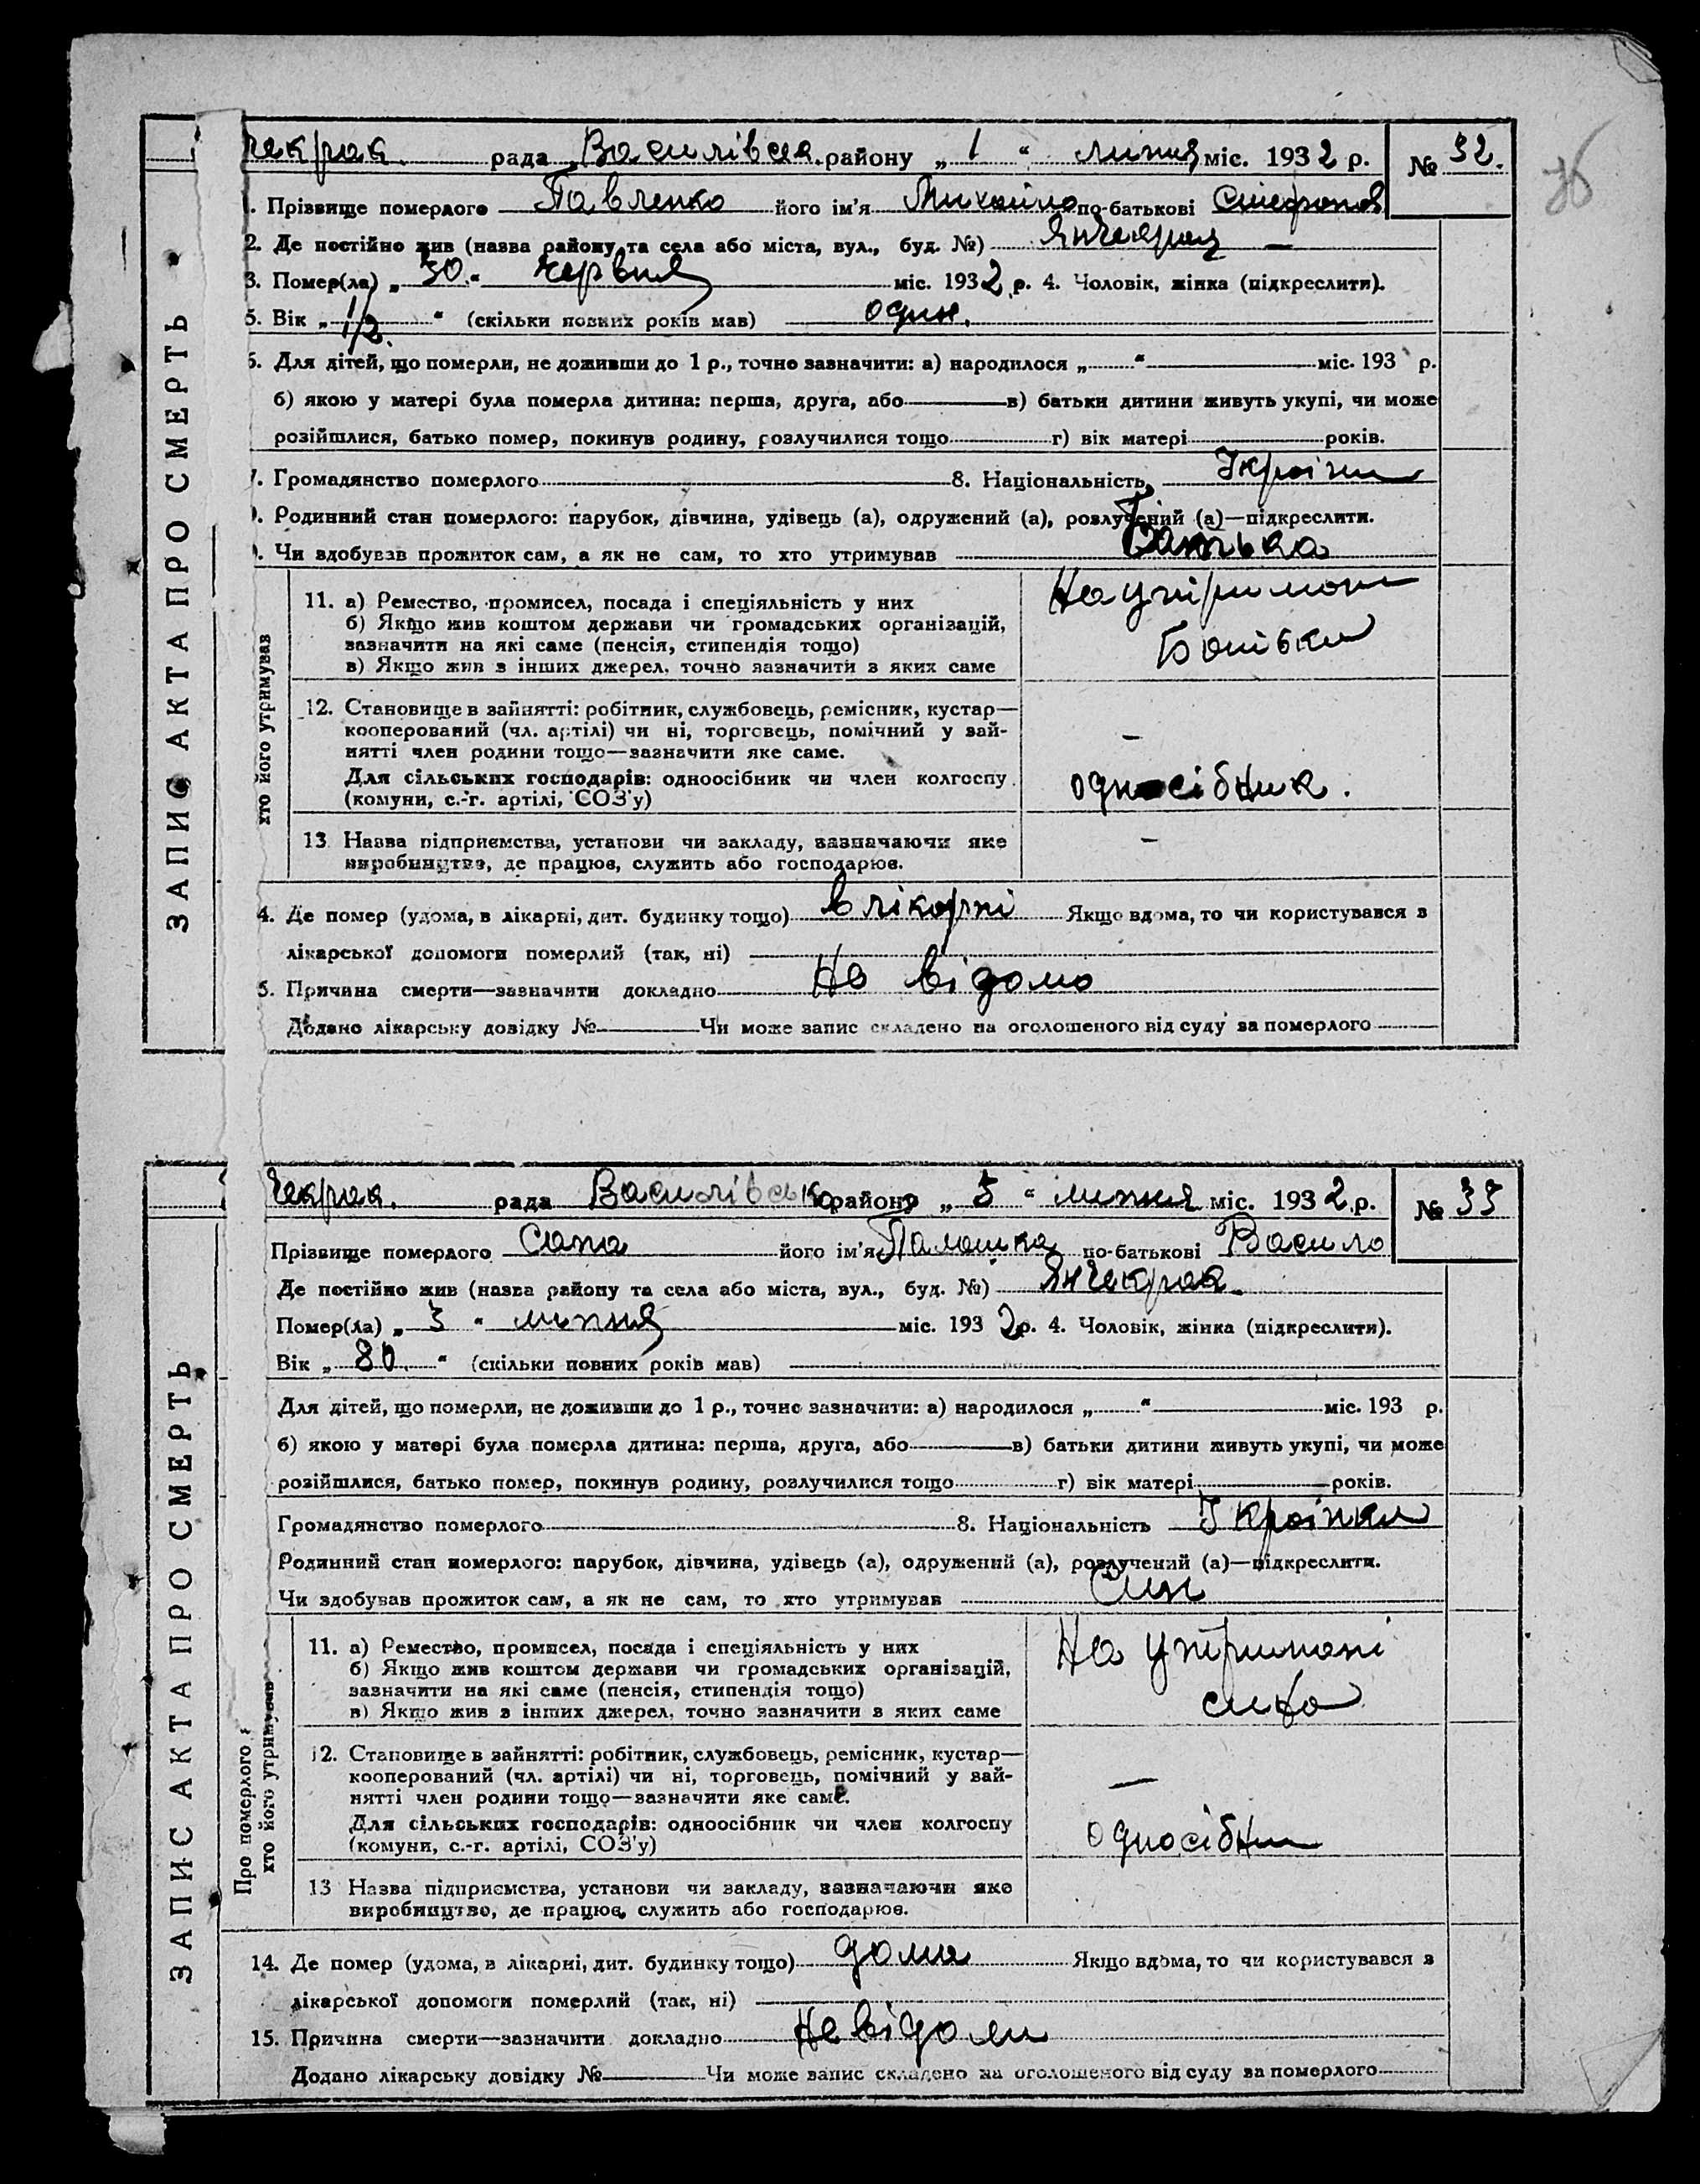 чекрак. рада Василівськ. району „ 1 “ липня міс. 1932 р. № 32.
36
. Прізвище померлого Павленко його ім'я Михайло по-батькові Стефанов
2. Де постійно жив (назва району та села або міста, вул., буд. №) Янчекрак —
3. Помер(ла) „ 30 “ червня міс. 1932 р. 4. Чоловік, жінка (підкреслити).
5. Вік „ 1/2. “ (скільки повних років мав) один.
6. Для дітей, що померли, не доживши до 1 р., точно зазначити: а) народилося „ “ міс. 193 р.
б) якою у матері була померла дитина: перша, друга, або в) батьки дитини живуть укупі, чи може
розійшлися, батько помер, покинув родину, розлучилися тощо г) вік матері років.
7. Громадянство померлого 8. Національність Україн
. Родинний стан померлого: парубок, дівчина, удівець (а), одружений (а), розлучений (а)—підкреслити.
. Чи здобував прожиток сам, а як не сам, то хто утримував Батька
ЗАПИС АКТА ПРО СМЕРТЬ
хто його утримував
11. а) Ремество, промисел, посада і спеціяльність у них
б) Якщо жив коштом держави чи громадських організацій,
зазначити на які саме (пенсія, стипендія тощо)
в) Якщо жив з інших джерел, точно зазначити з яких саме
На утриман
Батьки
12. Становище в зайнятті: робітник, службовець, ремісник, кустар—
кооперований (чл. артілі) чи ні, торговець, помічний у зай-
нятті член родини тощо—зазначити яке саме. —
Для сільських господарів: одноосібник чи член колгоспу
(комуни, с.-г. артілі, СОЗ'у) односібник.
13 Назва підприємства, установи чи закладу, зазначаючи яке —
виробництво, де працює, служить або господарює.
4. Де помер (удома, в лікарні, дит. будинку тощо) в лікарні Якщо вдома, то чи користувався з
лікарської допомоги померлий (так, ні)
5. Причина смерти—зазначити докладно Не відомо
Додано лікарську довідку № Чи може запис складено на оголошеного від суду за померлого
чекрак. рада Василівсько району „ 5 “ липня міс. 1932 р. № 33
Прізвище померлого Сапа його ім'я Палашка по-батькові Васило
Де постійно жив (назва району та села або міста, вул., буд. №) Янчекрак.
Помер(ла) „ 3 “ липня міс. 1932 р. 4. Чоловік, жінка (підкреслити).
Вік „ 80 “ (скільки повних років мав)
Для дітей, що померли, не доживши до 1 р., точно зазначити: а) народилося „ “ міс. 193 р.
б) якою у матері була померла дитина: перша, друга, або в) батьки дитини живуть укупі, чи може
розійшлися, батько помер, покинув родину, розлучилися тощо г) вік матері років.
Громадянство померлого 8. Національність Українка
Родинний стан померлого: парубок, дівчина, удівець (а), одружений (а), розлучений (а)—підкреслити.
Чи здобував прожиток сам, а як не сам, то хто утримував Син
ЗАПИС АКТА ПРО СМЕРТЬ
Про померлого
хто його утримував
11. а) Ремество, промисел, посада і спеціяльність у них
б) Якщо жив коштом держави чи громадських організацій,
зазначити на які саме (пенсія, стипендія тощо)
в) Якщо жив з інших джерел, точно зазначити з яких саме
На утримані
сина
12. Становище в зайнятті: робітник, службовець, ремісник, кустар—
кооперований (чл. артілі) чи ні, торговець, помічний у зай-
нятті член родини тощо—зазначити яке саме. —
Для сільських господарів: одноосібник чи член колгоспу
(комуни, с.-г. артілі, СОЗ'у) односібни
13 Назва підприємства, установи чи закладу, зазначаючи яке
виробництво, де працює, служить або господарює.
14. Де помер (удома, в лікарні, дит. будинку тощо) дома Якщо вдома, то чи користувався з
лікарської допомоги померлий (так, ні)
15. Причина смерти—зазначити докладно Не відоми
Додано лікарську довідку № Чи може запис складено на оголошеного від суду за померлого